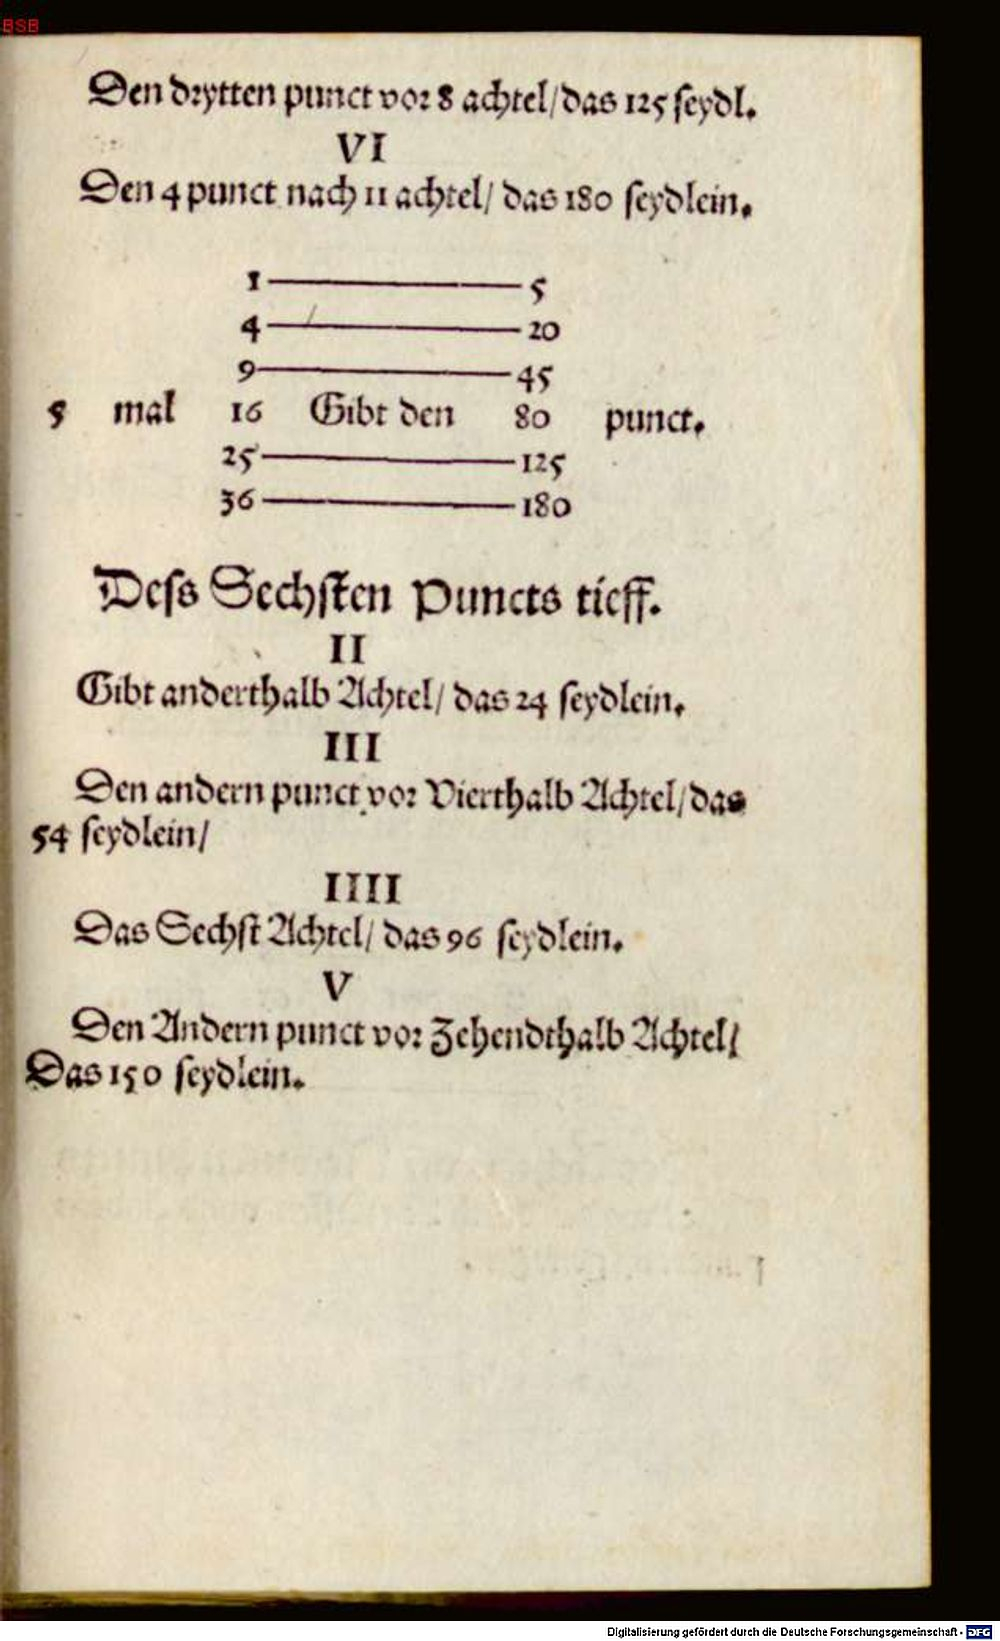 BSB
Den drytten punct vor 8 achtel/das 125 seydl.
VI
Den 4 punct nach 11 achtel/ das 180 seydlein.
1 5
4 20
9 45
5 mal 16 Gibt den 80 punct.
25 125
36 180
Dess Sechsten Puncts tieff.
II
Gibt anderthalb Achtel/ das 24 seydlein.
III
Den andern punct vor Vierthalb Achtel/das
54 seydlein/
IIII
Das Sechst Achtel/ das 96 seydlein.
V
Den Andern punct vor Zehendthalb Achtel/
Das 150 seydlein.
Digitalisierung gefördert durch die Deutsche Forschungsgemeinschaft - DFG